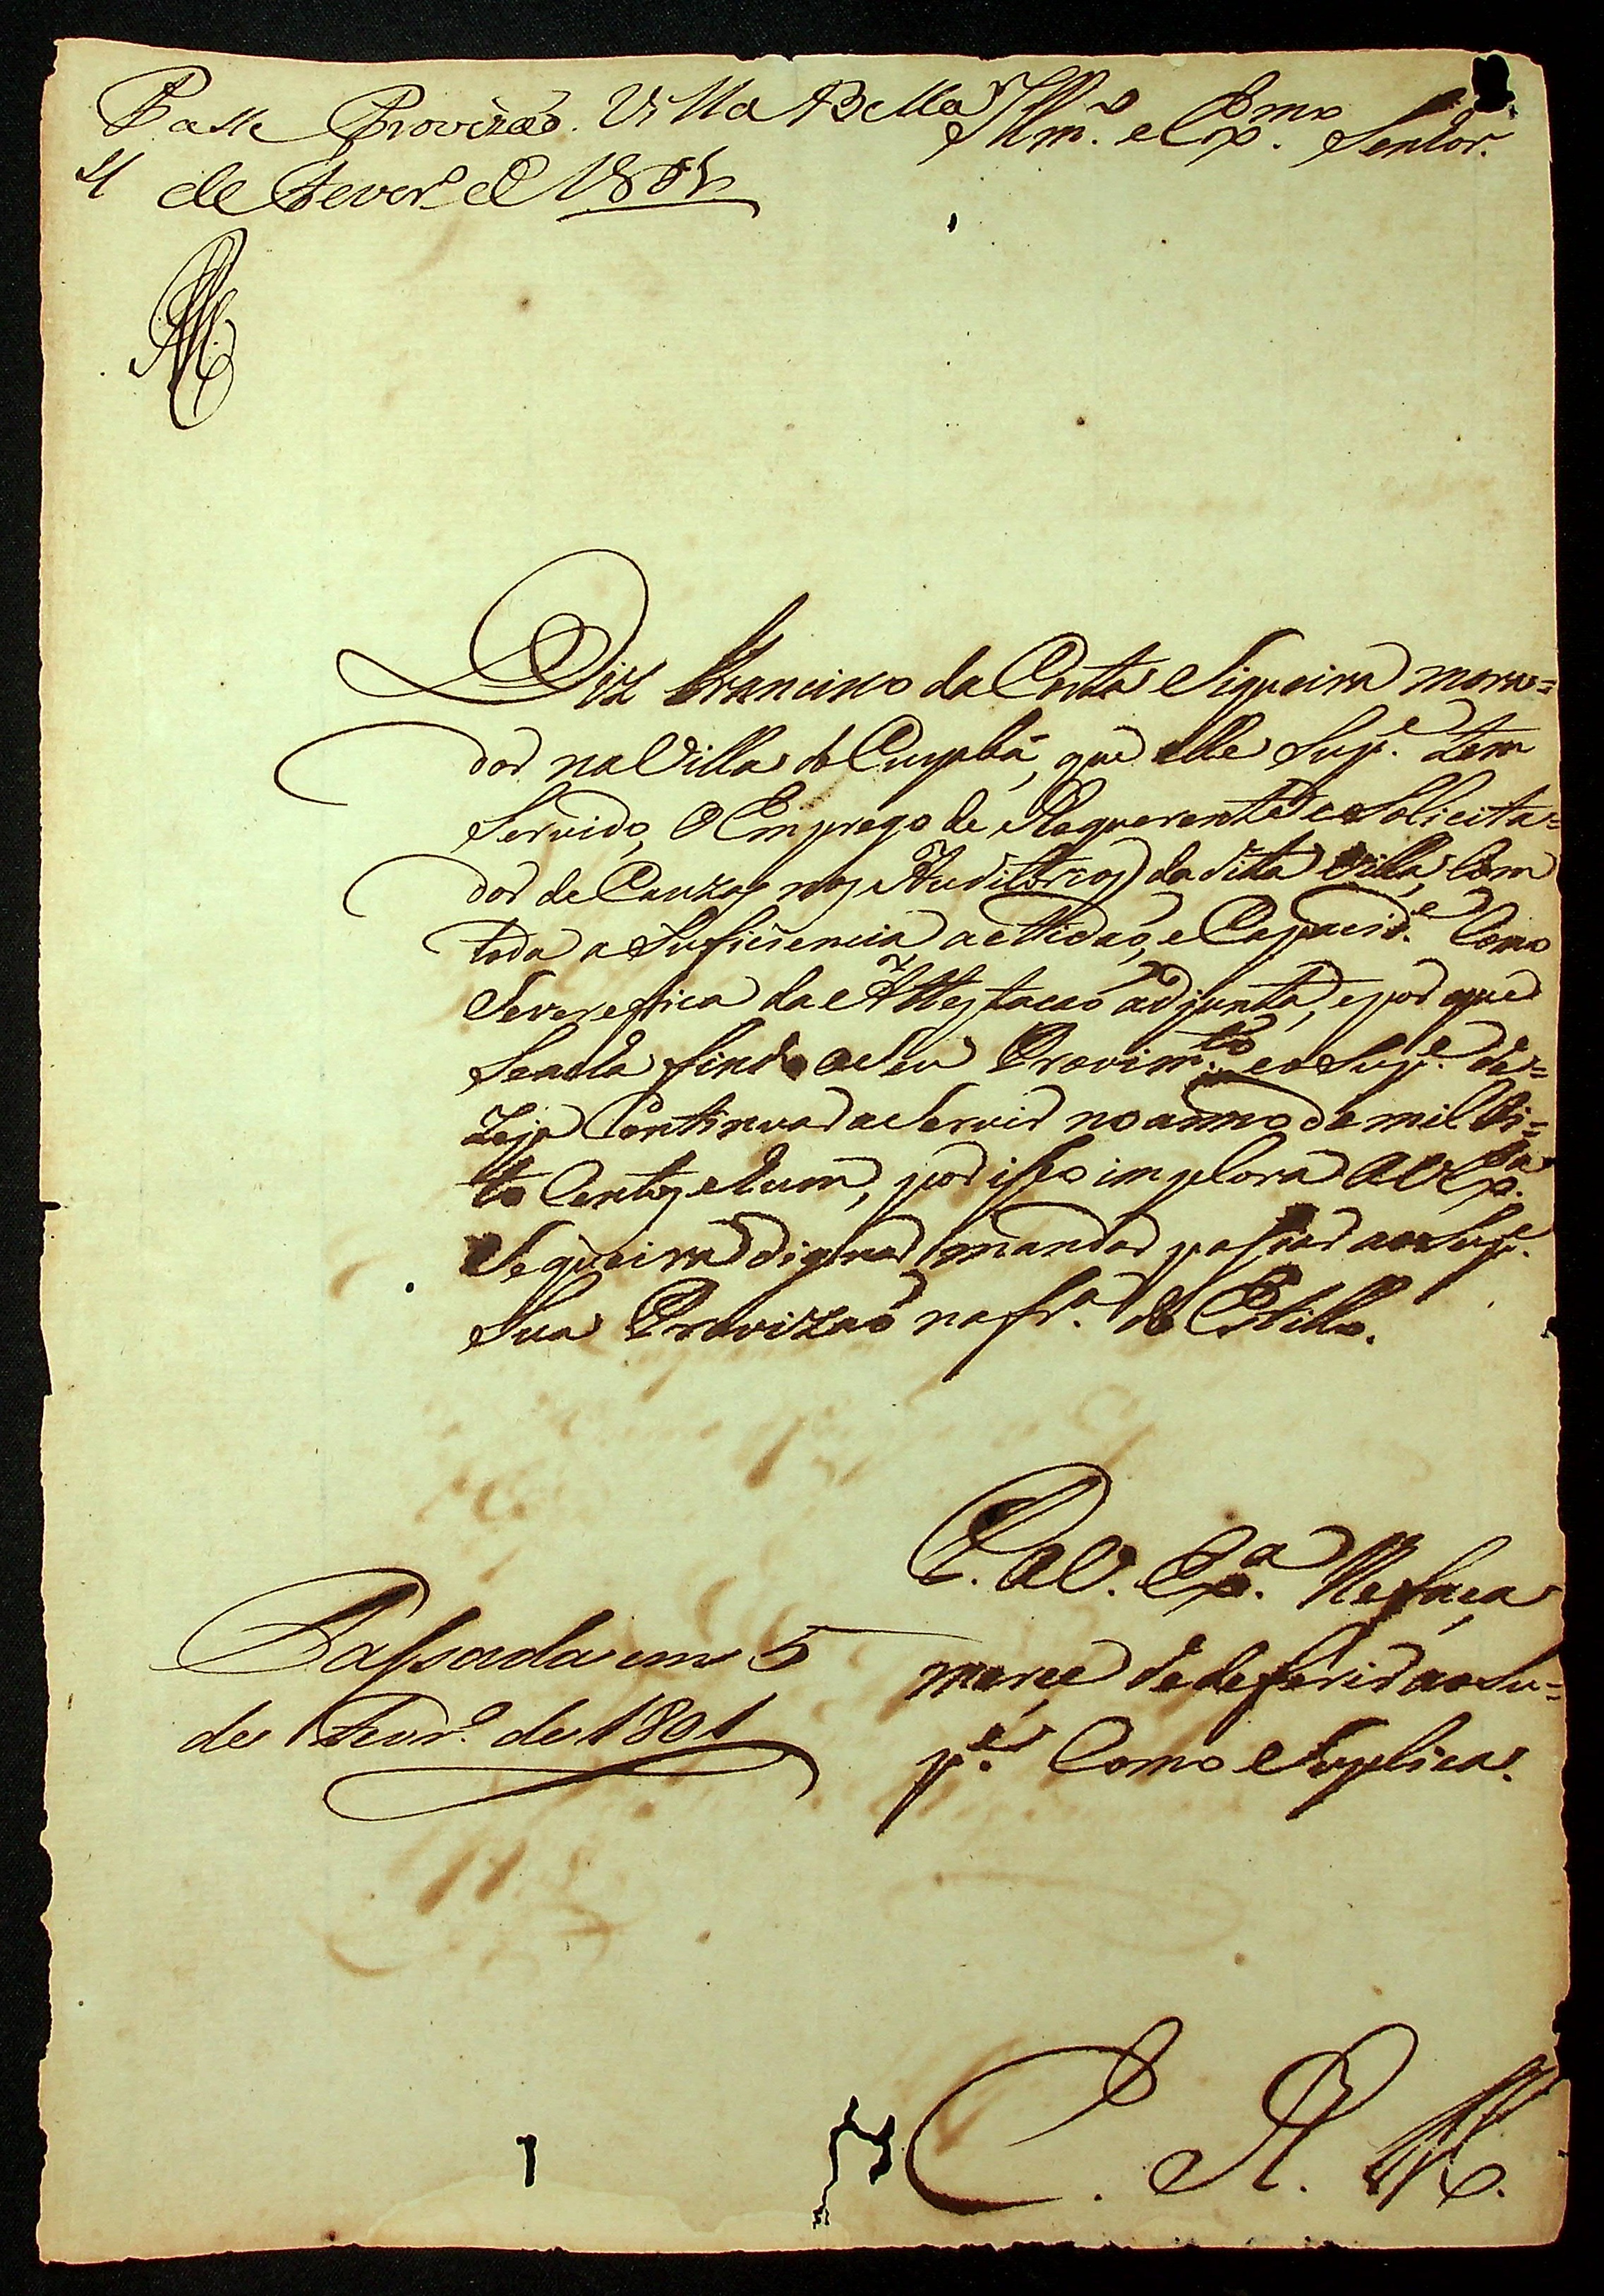 Passe Provizaõ. Villa Bella
4 de Fever.º de 1801
Illm.º e Exmº Senhor.
Diz Francisco da Costa Siqueira mora=
dor na Villa do Cuyabá, que elle Sup.e tem
Servido, o Emprego de Requerente e Solicita=
dor de Cauzas nos Auditorios da dita Villa, Com
toda a Suficiencia, actidaõ, e Capacid.e Como
Severefica da Attestacaõ adjunta, e por que
Seacha findo o Seu Provim.to e o Sup.e de=
Zeja Continuar a Servir no anno de mil Oi=
to Centos e hum, por isso implora a V Ex.ª
Sequeira dignar mandar passar ao Sup.e
Sua Provizaõ na fr.ª do Estillo.
P. a V. Ex.ª lhe faça
merce de deferir ao Su=
p.e Como Suplica.
Passada em 5
de Fevr.º de 1801
E. R. M.